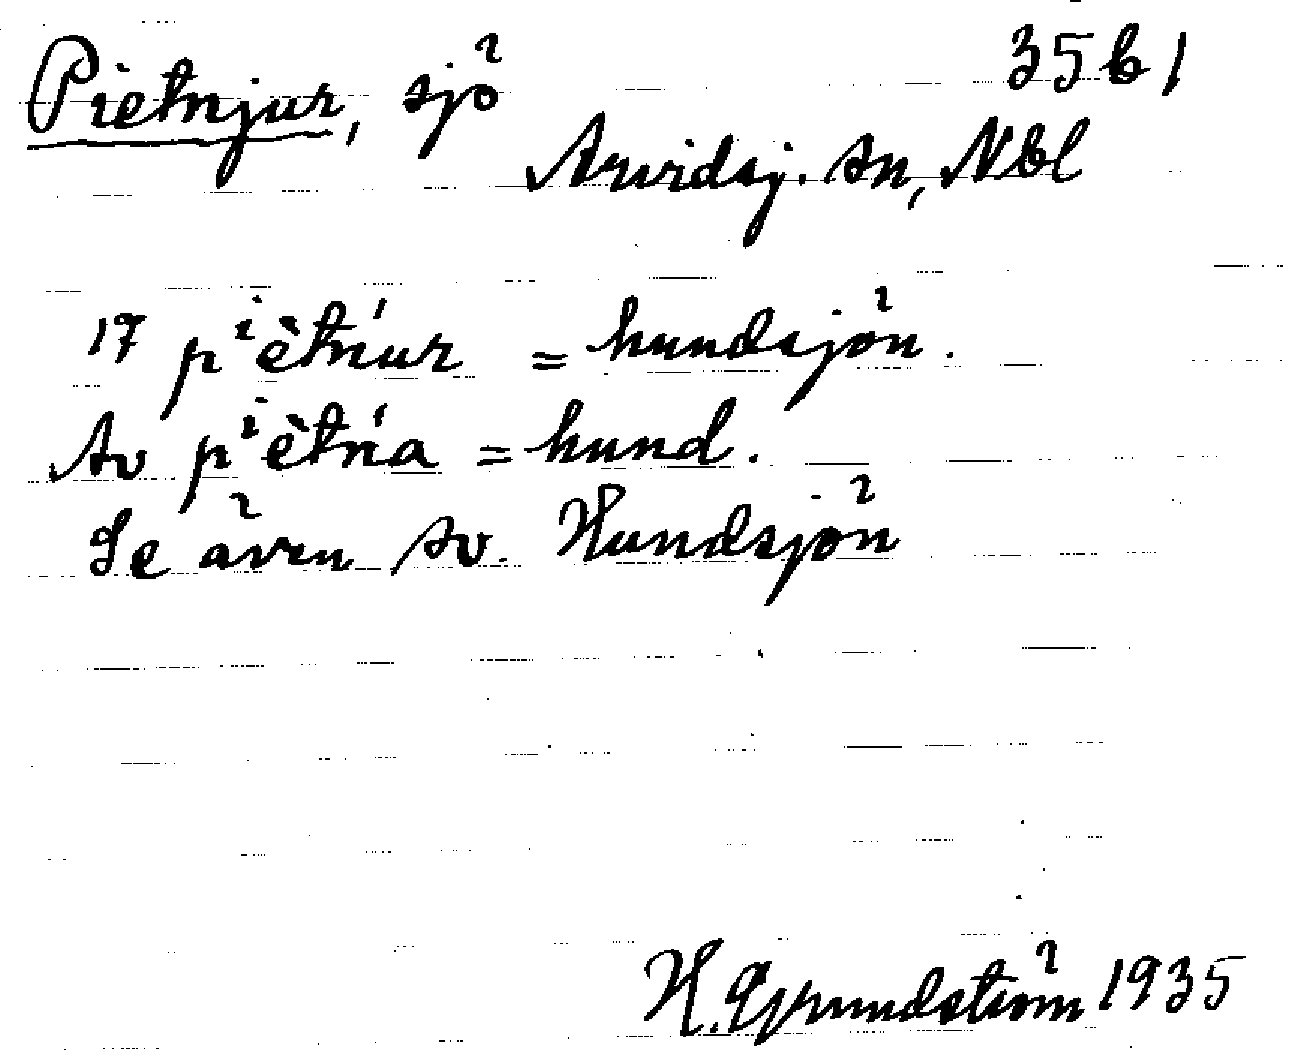 Pietnjur, sjö 35 b 1
Arvidsj. sn, Nbl
17 pⁱètńur = hundsjön.
Av pⁱètńa = hund.
Se även sv. Hundsjön
H. Grundström 1935